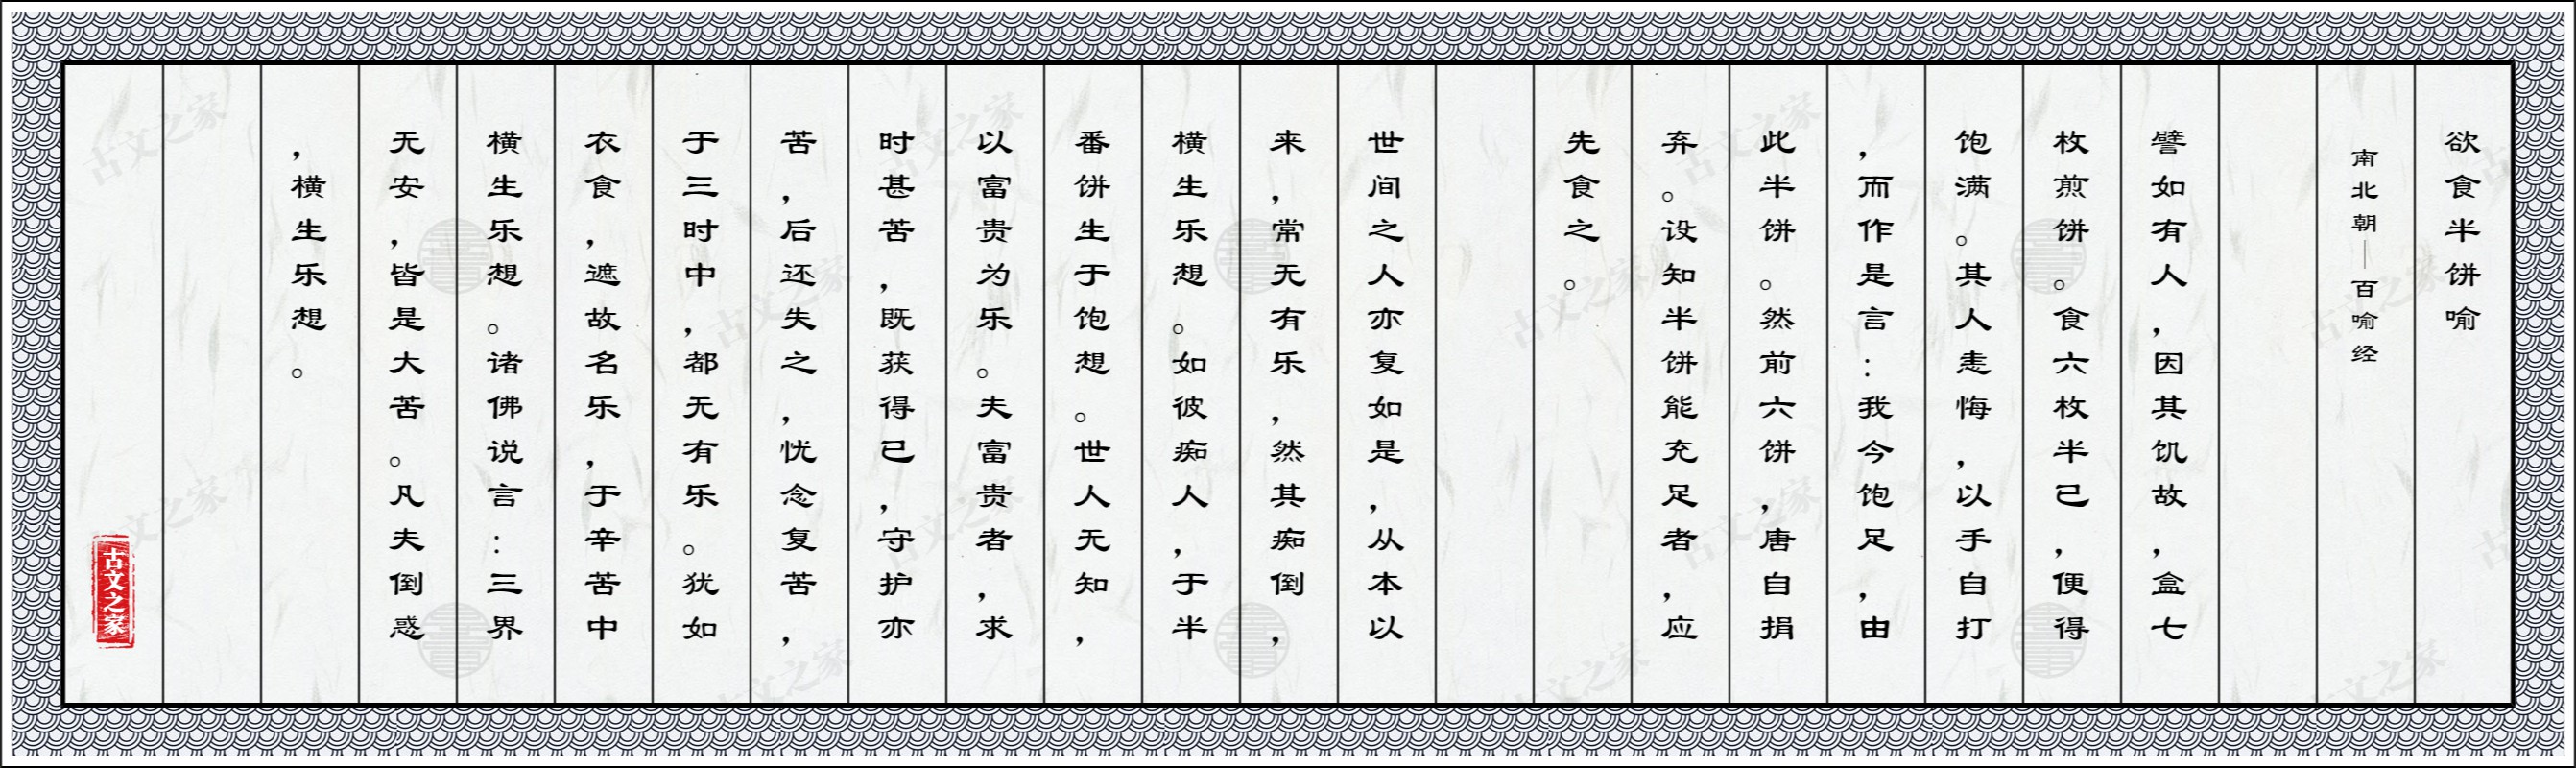 欲食半饼喻
南北朝｜百喻经
譬如有人，因其饥故，盒七
枚煎饼。食六枚半已，便得
饱满。其人恚悔，以手自打
，而作是言：我今饱足，由
此半饼。然前六饼，唐自捐
弃。设知半饼能充足者，应
先食之。
世间之人亦复如是，从本以
来，常无有乐，然其痴倒，
横生乐想。如彼痴人，于半
番饼生于饱想。世人无知，
以富贵为乐。夫富贵者，求
时甚苦，既获得已，守护亦
苦，后还失之，忧念复苦，
于三时中，都无有乐。犹如
衣食，遮故名乐，于辛苦中
横生乐想。诸佛说言：三界
无安，皆是大苦。凡夫倒惑
，横生乐想。
古文之家